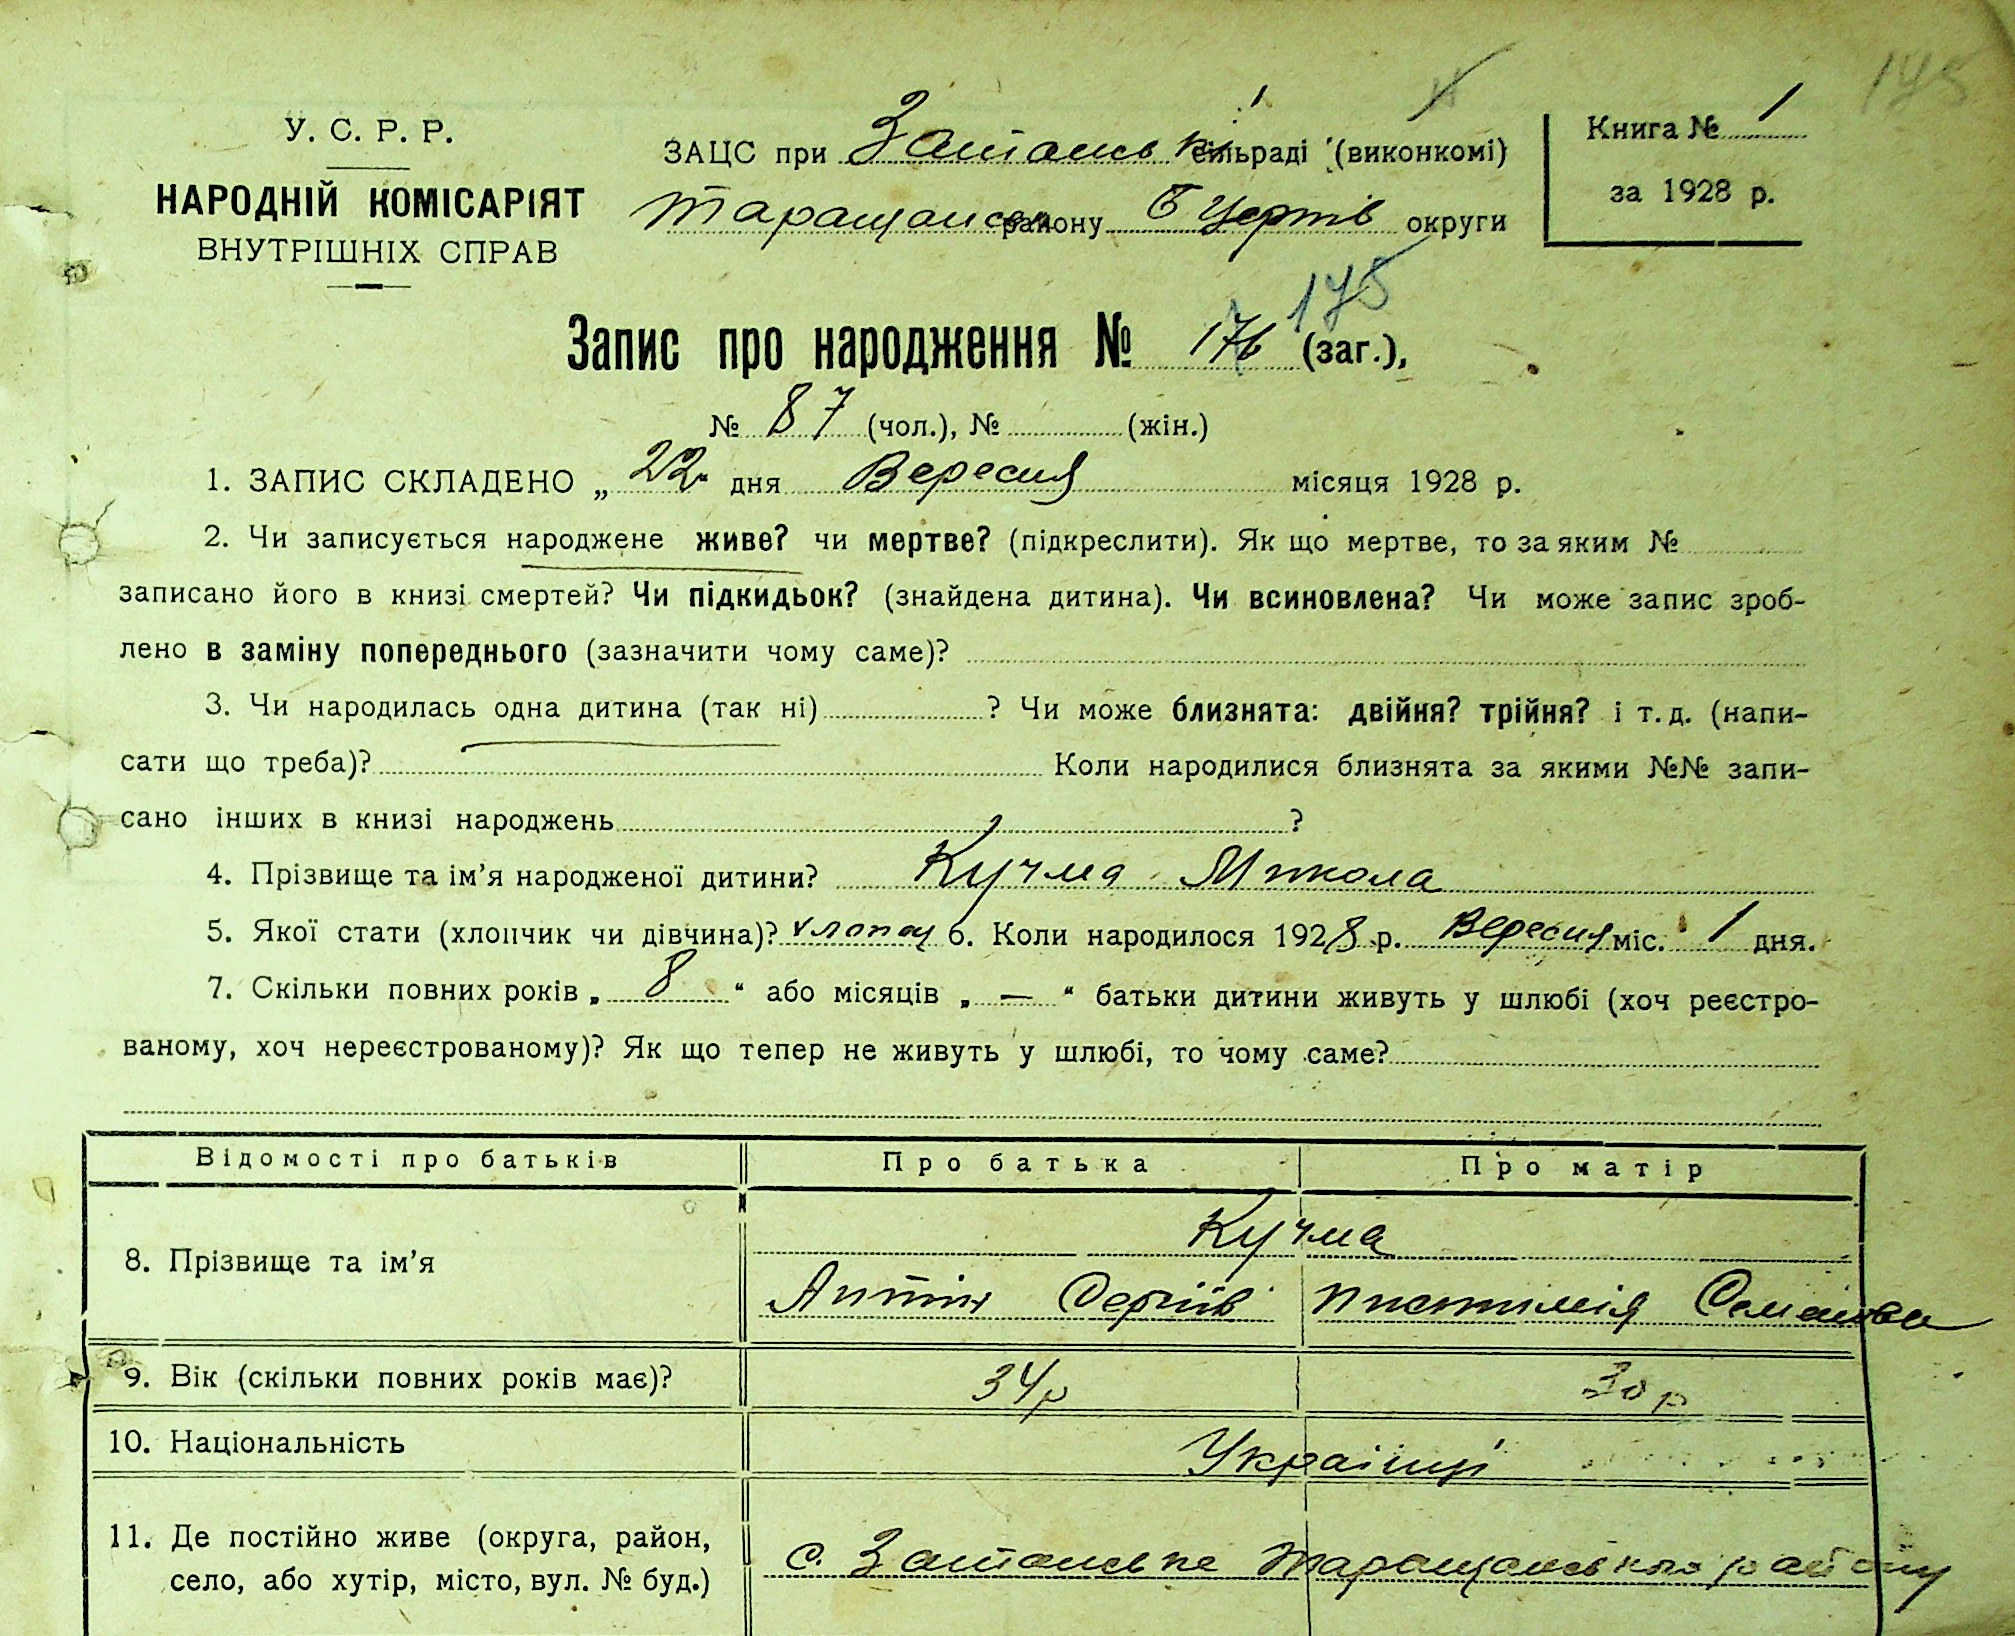 175
У. С. Р. Р.
НАРОДНІЙ КОМІСАРІЯТ
ВНУТРІШНІХ СПРАВ
ЗАЦС при сільраді (виконкомі)
району Б Церків округи
Книга № 1
за 1928 р.
175
Запис про народження № 176 (заг.),
№ 87 (чол.), № (жін.)
1. ЗАПИС СКЛАДЕНО „ 22 " дня Вересня місяця 1928 р.
2. Чи записується народжене живе? чи мертве? (підкреслити). Як що мертве, то за яким №
записано його в книзі смертей? Чи підкидьок? (знайдена дитина). Чи всиновлена? Чи може запис зроб-
лено в заміну попереднього (зазначити чому саме)?
3. Чи народилась одна дитина (так ні) ? Чи може близнята: двійня? трійня? і т. д. (напи-
сати що треба)? Коли народилися близнята за якими №№ запи-
сано інших в книзі народжень ?
4. Прізвище та ім'я народженої дитини? Кучма Микола
5. Якої стати (хлопчик чи дівчина)? хлопец 6. Коли народилося 1928 р. Вересня міс. 1 дня.
7. Скільки повних років „ 8 " або місяців „ — " батьки дитини живуть у шлюбі (хоч реєстро-
ваному, хоч нереєстрованому)? Як що тепер не живуть у шлюбі, то чому саме?
Відомості про батьків Про батька Про матір
8. Прізвище та ім'я Кучма
Антін Сергіїв
9. Вік (скільки повних років має)? 34р 30р
10. Національність Українці
11. Де постійно живе (округа, район,
село, або хутір, місто, вул. № буд.)
с. Таращанського району